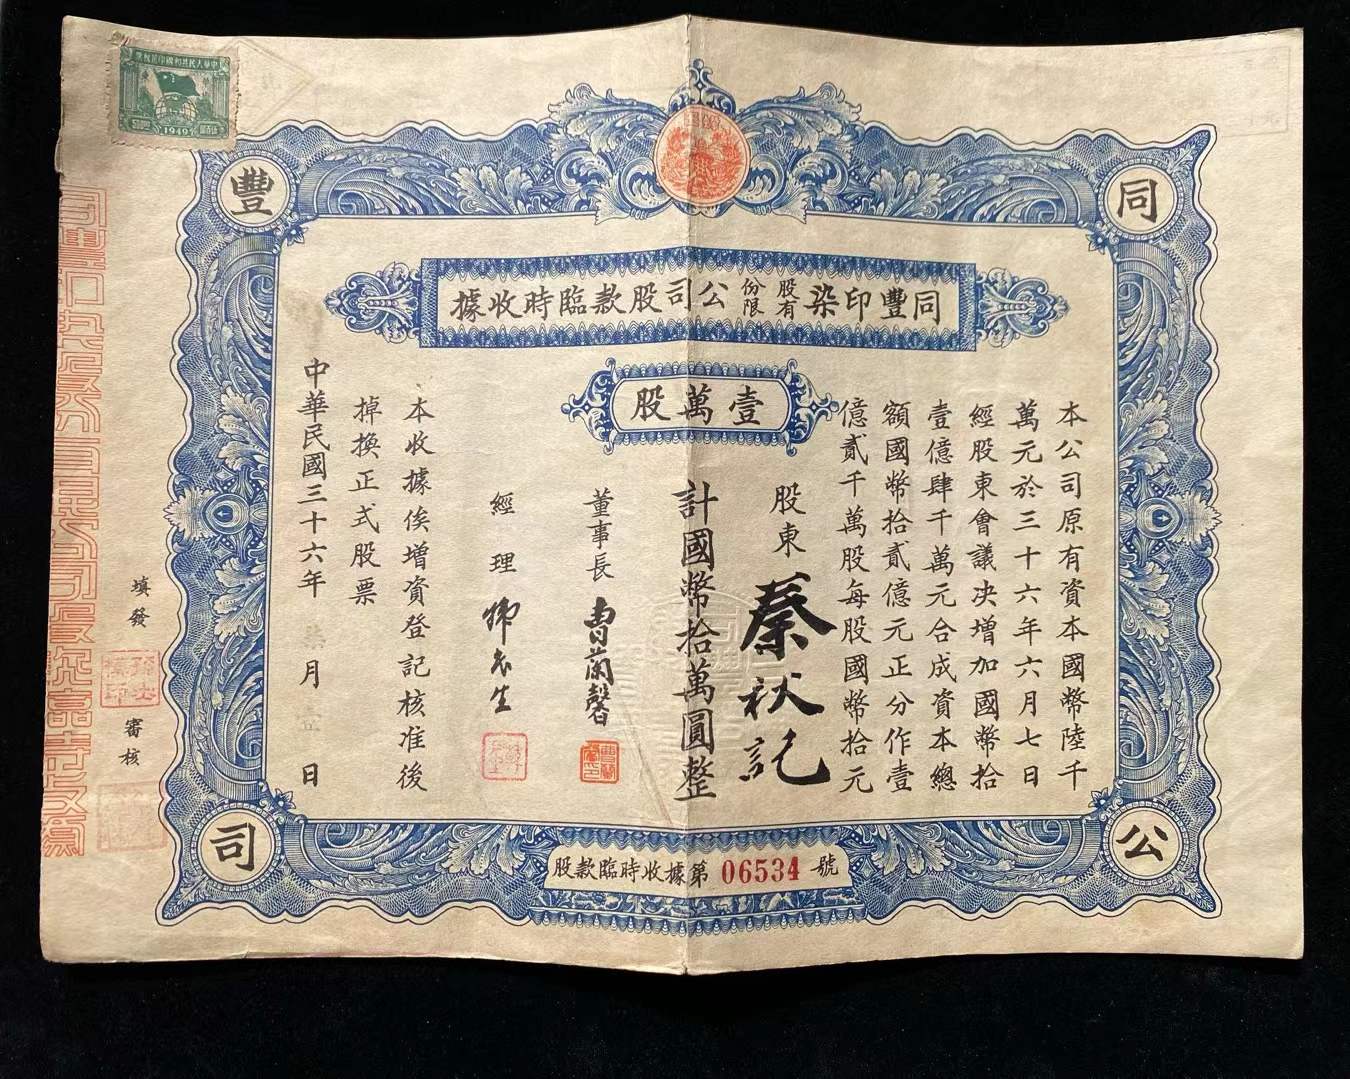 中華人民共和國印花稅票
1949
同
豐
公
司
同豐印染股份有限公司股款臨時收據
壹萬股
本公司原有資本國幣陸千
萬元於三十六年六月七日
經股東會議決增加國幣拾
壹億肆千萬元合成資本總
額國幣拾貳億元正分作壹
億貳千萬股每股國幣拾元
股東 秦秋記
計國幣拾萬圓整
董事長 曹蘭馨
經理
本收據俟增資登記核准後
掉換正式股票
中華民國三十六年 柒月 壹日
填發
審核
股款臨時收據第 06534 號